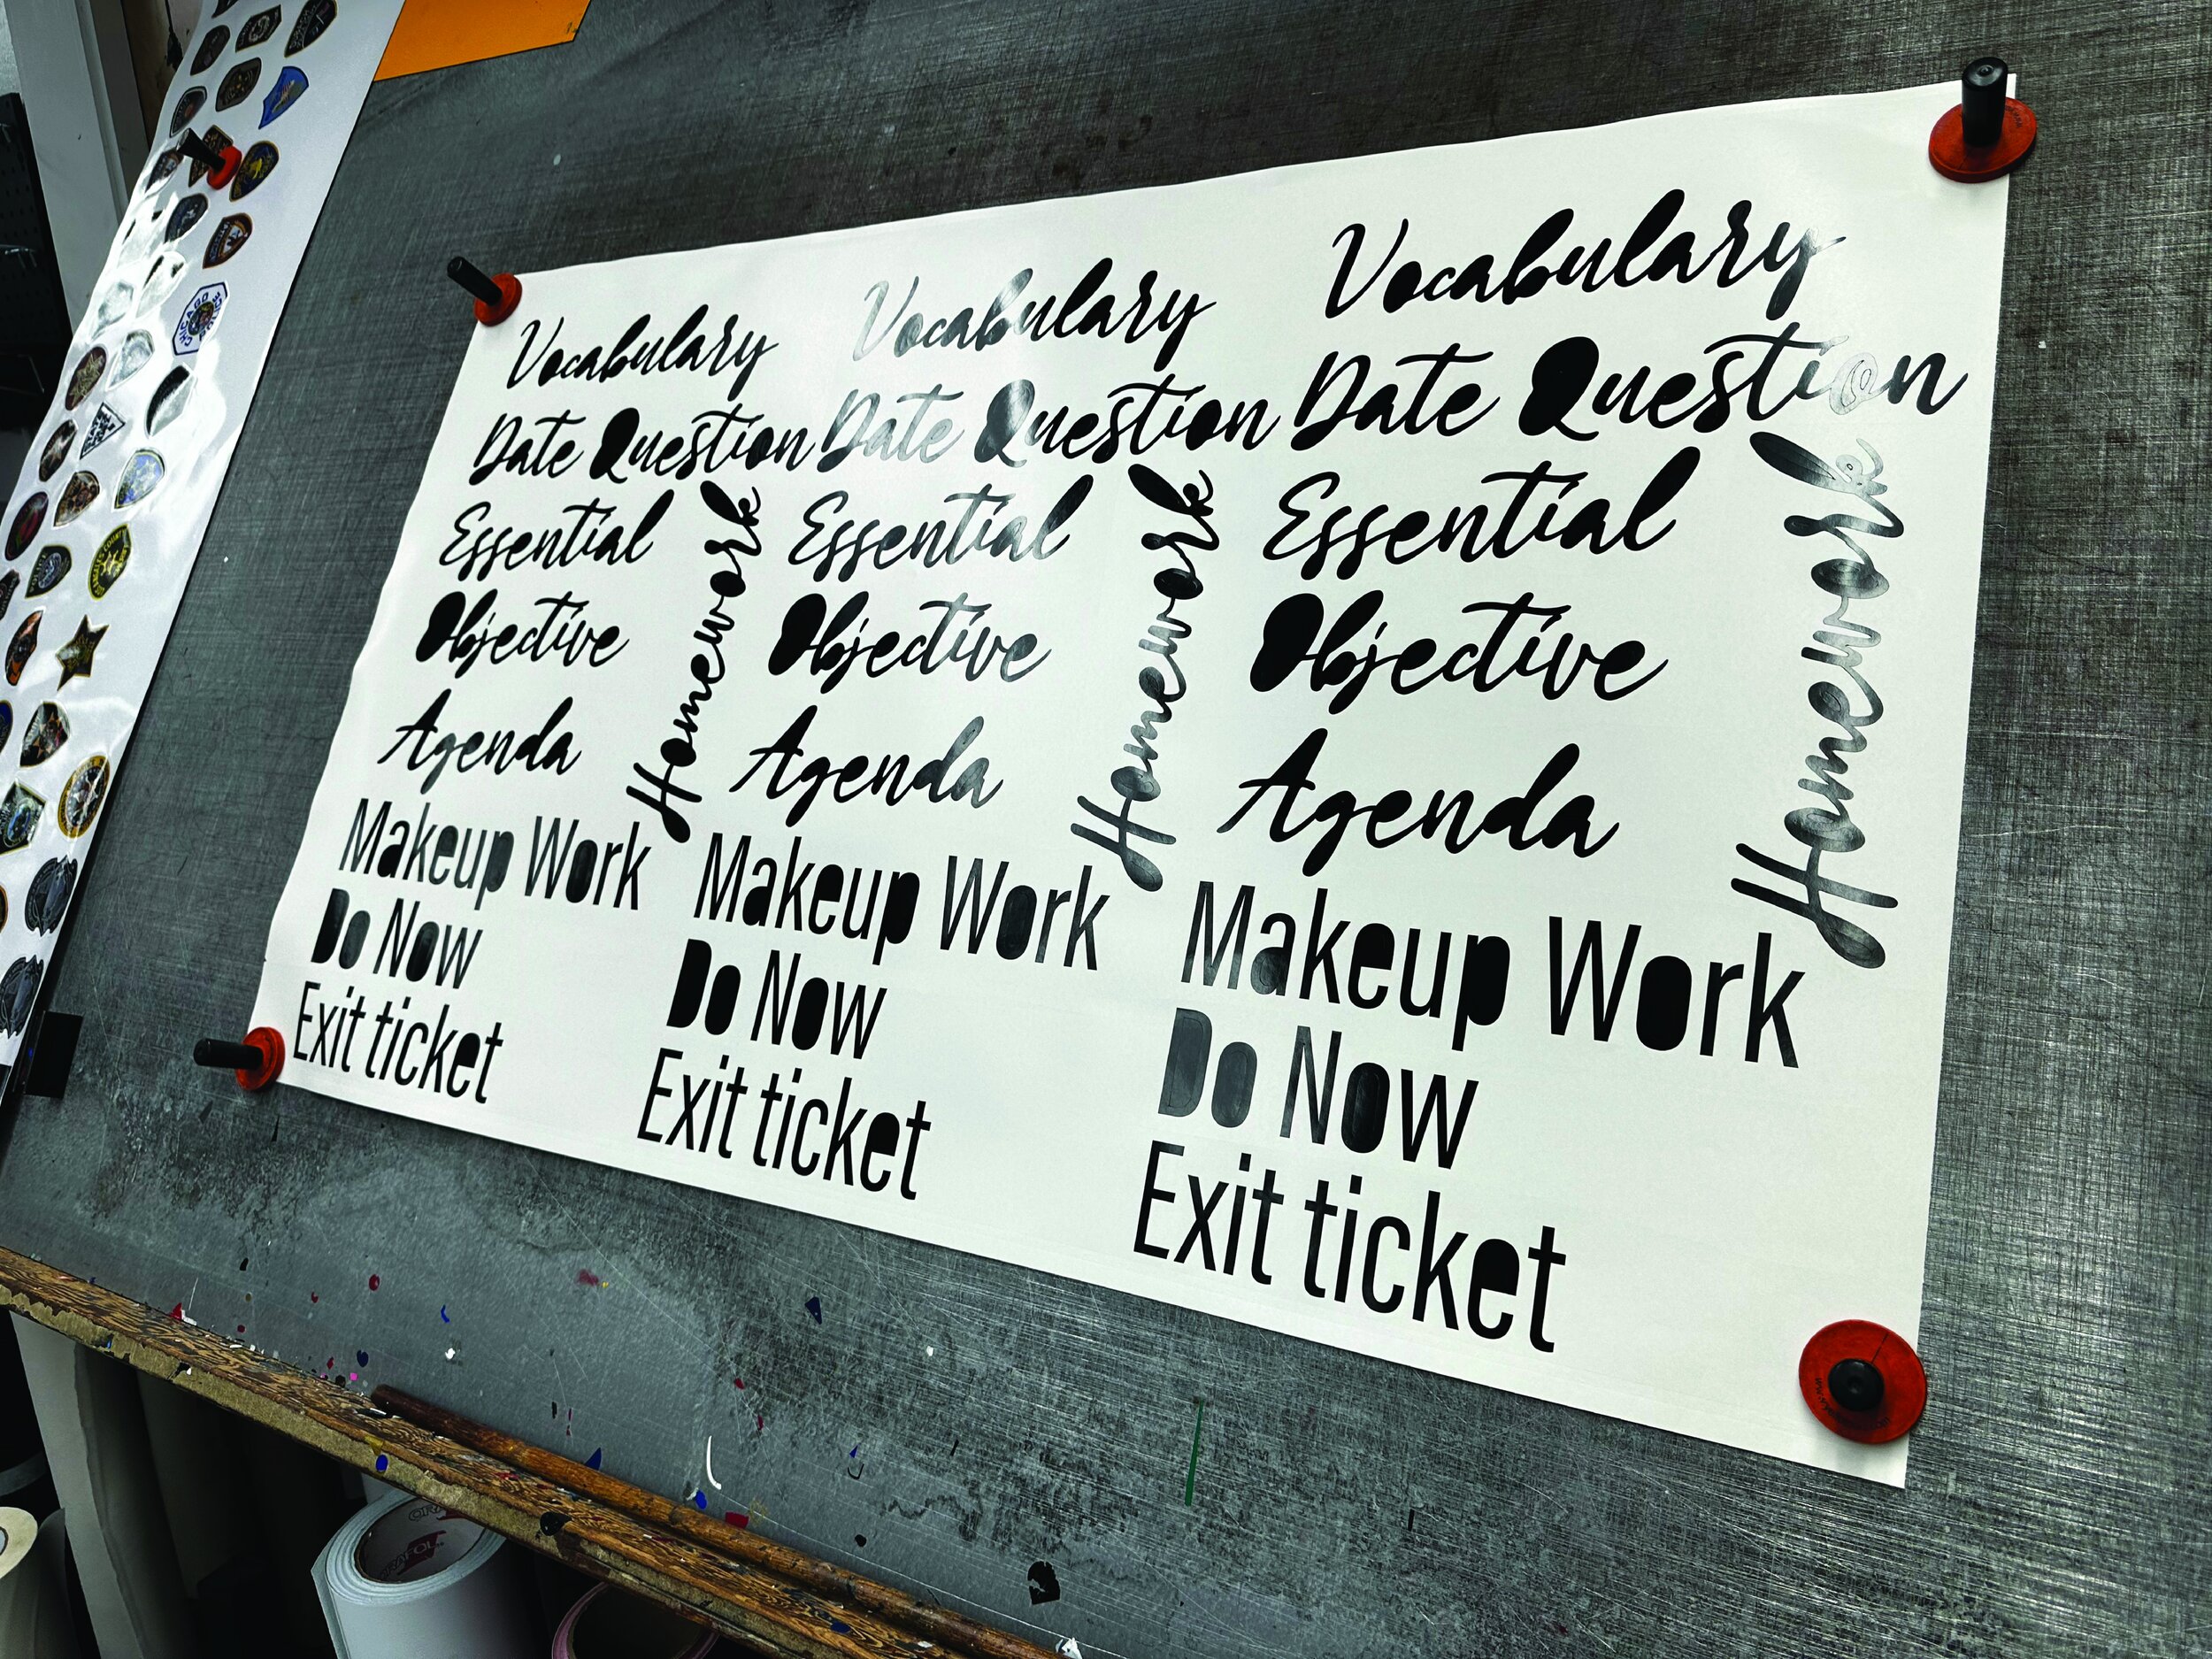 Vocabulary
Date Question
Essential
Objective
Agenda
Homework
Makeup Work
Do Now
Exit ticket
Vocabulary
Date Question
Essential
Objective
Agenda
Homework
Makeup Work
Do Now
Exit ticket
Vocabulary
Date Question
Essential
Objective
Agenda
Homework
Makeup Work
Do Now
Exit ticket
CHICAGO
POLICE
ORAFOL